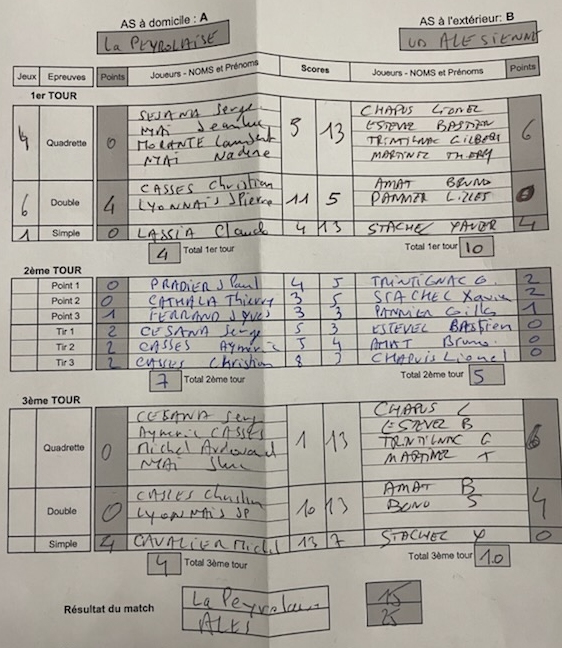 AS à domicile : A AS à l'extérieur: B
La PEYROLAISE UD ALESIENNE
Jeux Epreuves Points Joueurs - NOMS et Prénoms Scores Joueurs - NOMS et Prénoms Points
1er TOUR
4 Quadrette 0 13 6
Serge CHAPUS Lionel
ESTEVE BASTIEN
MORANTE TRINTIGNAC GILBERT
MYAI Nadine MARTINEZ THERY
6 Double 4 CASSES Christian 11 5 AMAT BRUNO 0
LYONNAIS JPierre PANNIER GILLES
1 Simple 0 LASSIA Claude 4 13 STACHEL XAVIER 4
4 Total 1er tour Total 1er tour 10
2ème TOUR
Point 1 0 PRADIER J Paul 4 5 TRINTIGNAC G. 2
Point 2 0 CATHALA Thierry 3 5 STACHEL Xavier 2
Point 3 1 FERRAND JYVES 3 3 PANNIER Gilles 1
Tir 1 2 CESANA Serge 5 3 ESTEVEL BASTIEN 0
Tir 2 2 CASSES Aymeric 5 4 AMAT Bruno. 0
Tir 3 2 CASSES Christian 8 CHAPUIS Lionel 0
7 Total 2ème tour Total 2ème tour 5
3ème TOUR
Quadrette 0 1 13 6
CESANA Serg CHAPUS L
Aymeric CASSES ESTEVEL B
Michel TRINTIGNAC G
MYAI MARTINEZ T
Double 0 CASSES Christian 10 13 AMAT B 4
LYONNAIS JP BONO S
Simple 4 CAVALIER Michel 13 7 STACHEL X 0
4 Total 3ème tour Total 3ème tour 10
Résultat du match La Peyrolaise 15
ALES 25